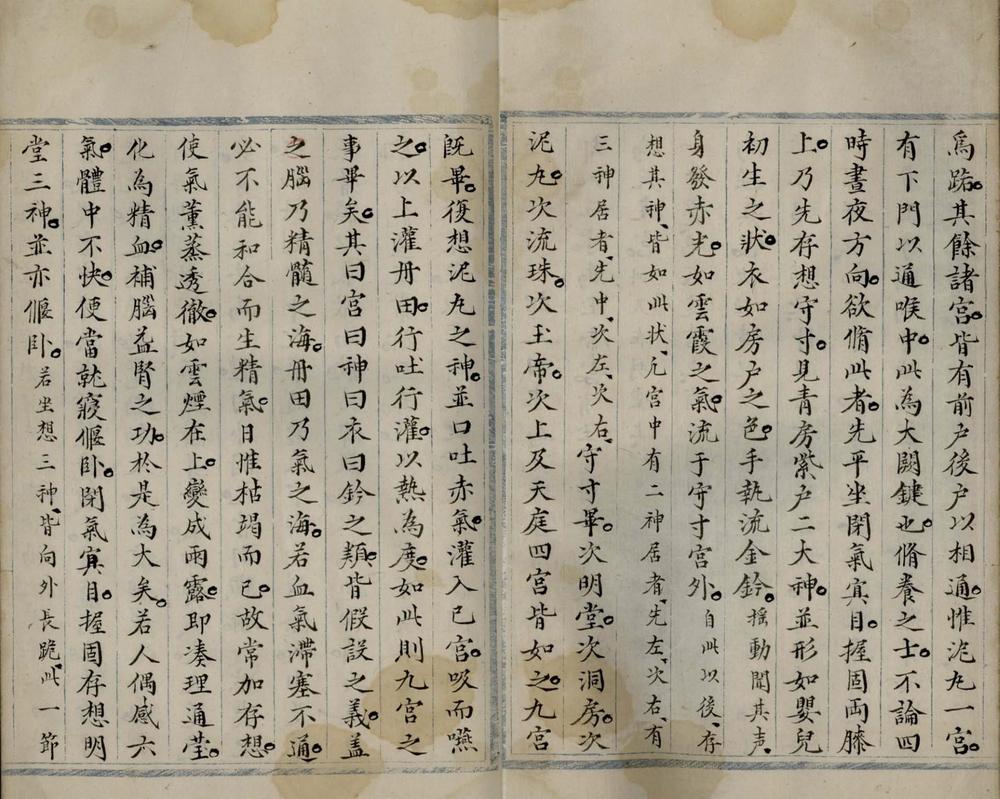 為跖其餘諸宮皆有前戶後戶以相通惟泥丸一宮
有下門以通喉中此為大關鍵也脩養之士不論四
時晝夜方向欲脩此者先平坐閉氣冥目握固兩膝
上乃先存想守寸見青房紫戶二大神並形如嬰兒
初生之狀衣如房戶之色手執流金鈴搖動聞其声
身發赤光如雲霞之氣流于守寸宮外自此以後存
想其神皆如此狀凡宮中有二神居者先左次右有
三神居者先中次左次右守寸畢次明堂次洞房次
泥丸次流珠次玉帝次上及天庭四宮皆如之九宮
既畢復想泥丸之神並口吐赤氣灌入己宮吸而嚥
之以上灌丹田行吐行灌以熱為度如此則九宮之
事畢矣其曰宮曰神曰衣曰鈴之類皆假設之義盖
之腦乃精髓之海丹田乃氣之海若血氣滯塞不通
必不能和合而生精氣日惟枯竭而已故常加存想
使氣薰蒸透徹如雲煙在上變成雨露即凑理通瑩
化為精血補腦益腎之功於是為大矣若人偶感六
氣體中不快便當就寢偃卧閉氣冥目握固存想明
堂三神並亦偃卧若坐想三神皆向外長跪此一節